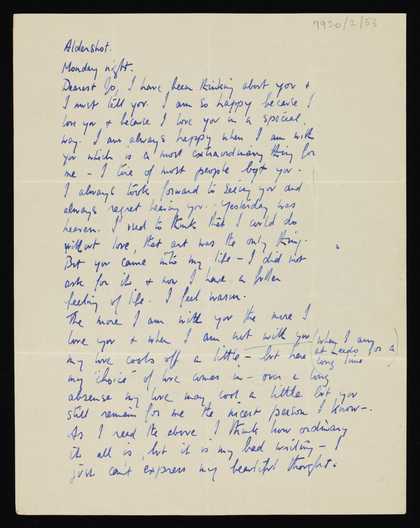 9920/2/53
Aldershot.
Monday night.
Dearest Jo, I have been thinking about you &
I must tell you. I am so happy because I
love you & because I love you in a special
way. I am always happy when I am with
you which is a most extraordinary thing for
me – I tire of most people but you.
I always look forward to seeing you and
always regret leaving you. Yesterday was
heaven. I used to think that I could do
without love, that art was the only thing.
But you came into my life – I did not
ask for it. & now I have a fuller
feeling of life. I feel warm.
The more I am with you the more I
love you & when I am not with you (when I am
my love cools off a little – but here at weeks for a
long time)
my "choice" of love comes in – over a long
absense my love may cool a little but you
still remain for me the nicest person I know –.
As I read the above I think how ordinary
its all is, but it is my bad writing – I
just can't express my beautiful thought.